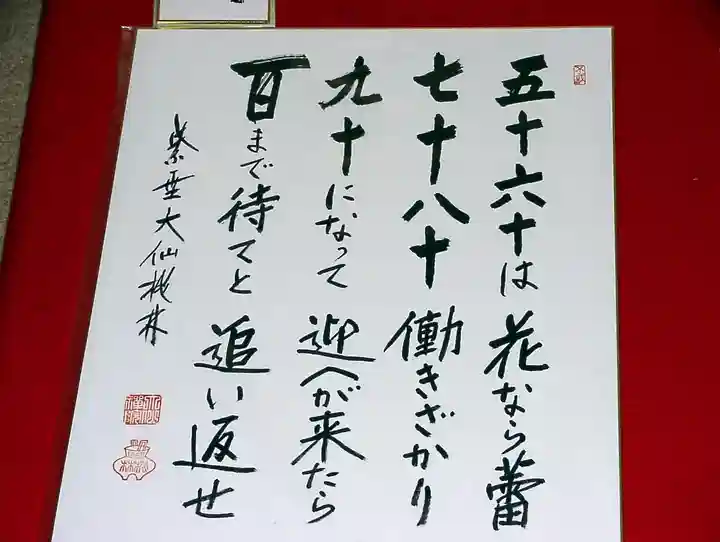 五十六十は 花なら蕾
七十八十 働きざかり
九十になって 迎へが来たら
百まで待てと 追い返せ
紫野大仙機林